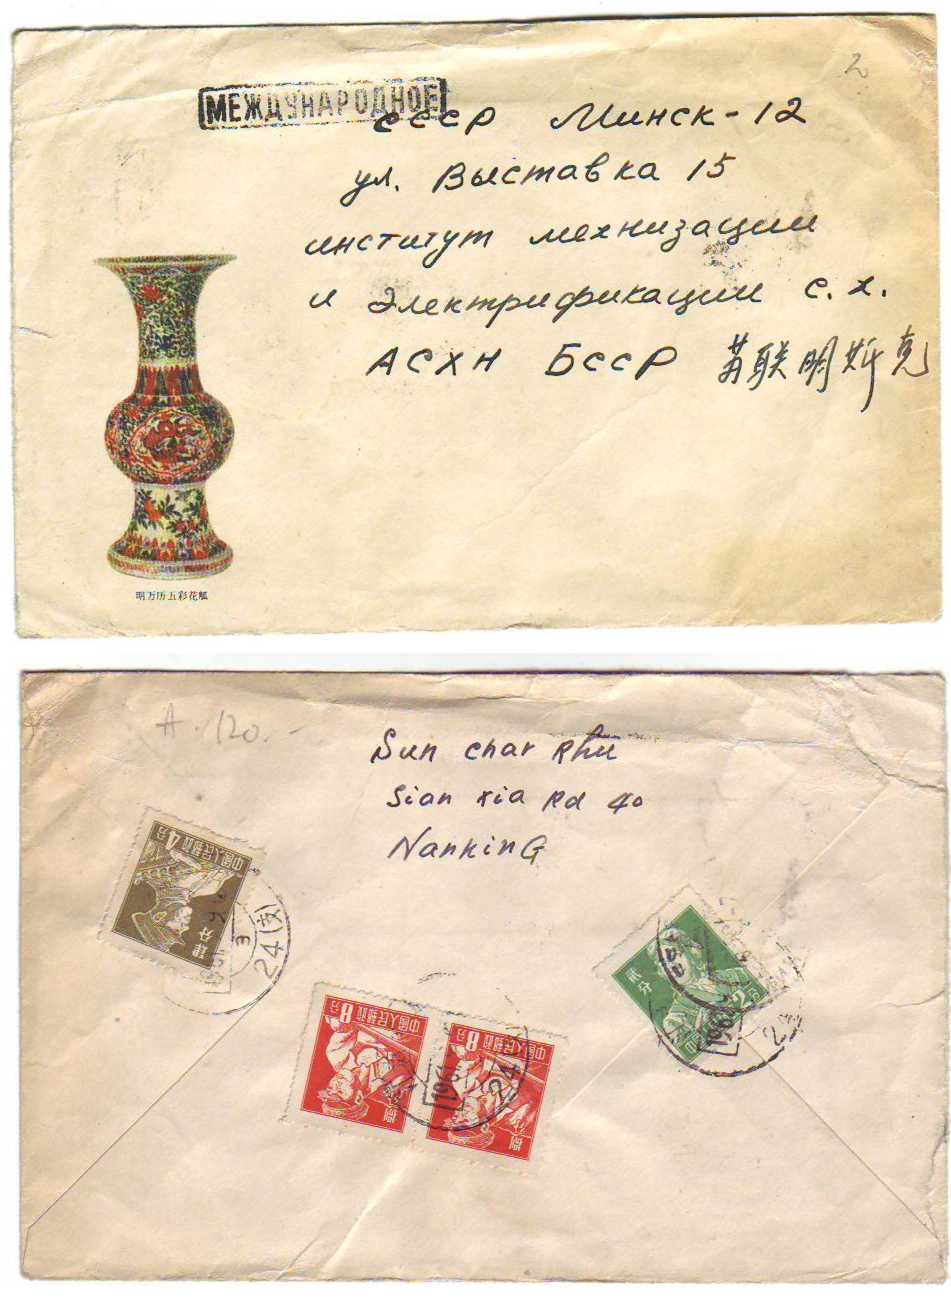 2
МЕЖДУНАРОДНОЕ
СССР Минск-12
ул. Выставка 15
институт мехнизации
и электрификации с.х.
АСХН БССР 苏联明斯克
明万历五彩花觚
A. 120.-
Sun char Rhu
Sian xia Rd 40
NanKinG
中国人民邮政
4分
肆分
24(支)
中国人民邮政
8分
捌分
中国人民邮政
8分
捌分
24
贰分
2分
196